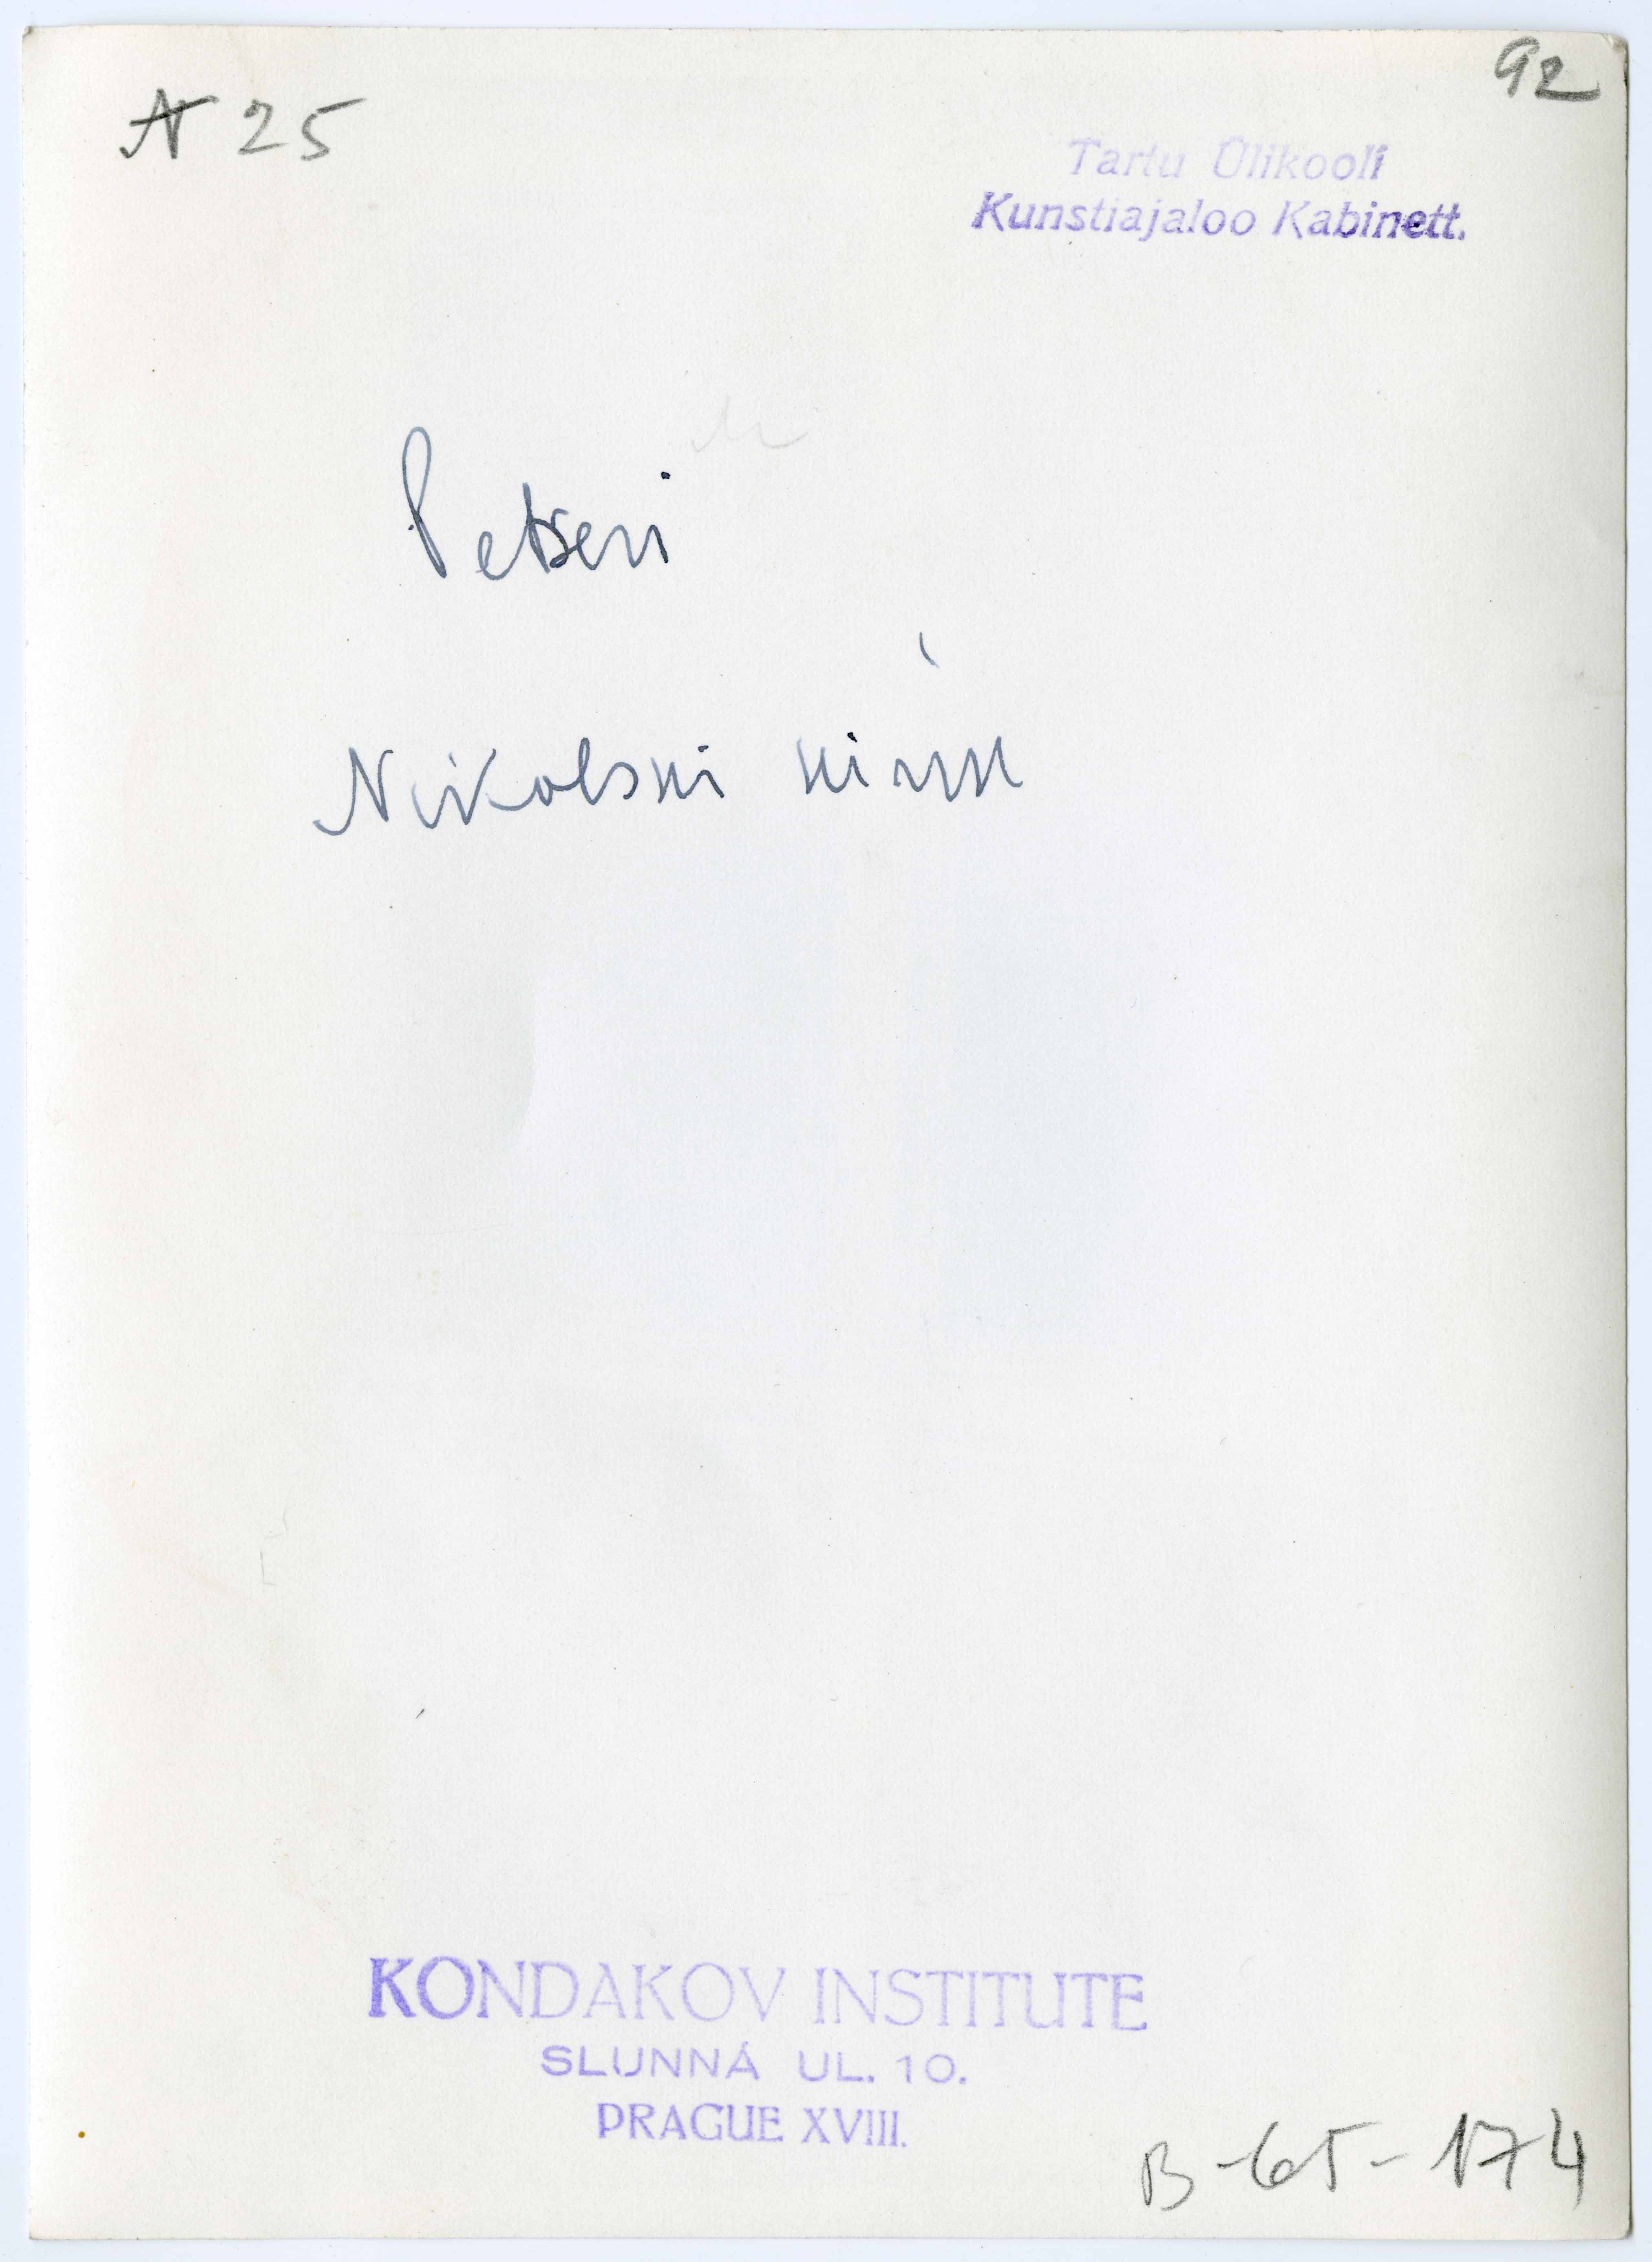 A 25
92
Tartu Ülikooli
Kunstiajaloo Kabinett.
Petseri
Nikolski kirik
KONDAKOV INSTITUTE
SLUNNÁ UL. 10.
PRAGUE XVIII.
B-65-174